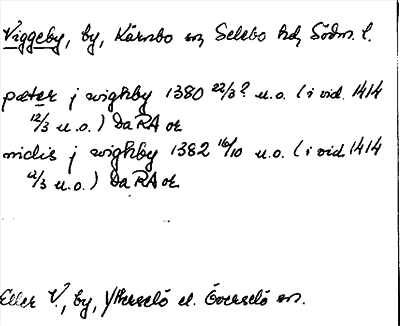 Viggeby, by, Kärnbo sn, Selebo hd, Södm. l.
pæter j wighby 1380 22/3? u.o. (i vid. 1414
12/3 u.o.) Da RA or
nidis j wighby 1382 16/10 u.o. (i vid. 1414
12/3 u.o.) Da RA or.
Eller V., by, Ytterselö el. Överselö sn.